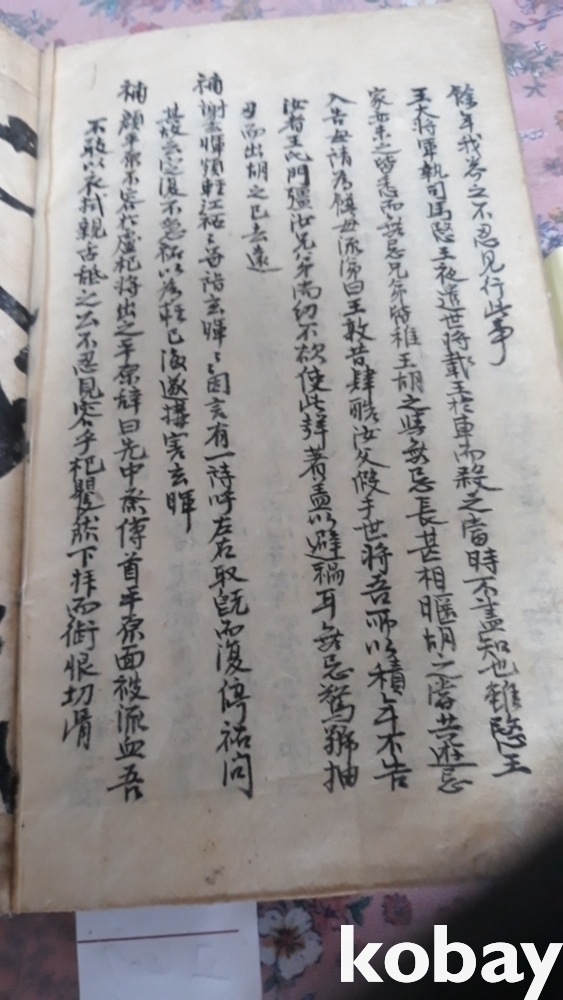 餘年我岑之不忍見行此事
王大將軍執司馬愍王夜遣世將載王於車而殺之當時不盡知也雖愍王
家亦未之皆悉而無忌兄弟皆稚王胡之與無忌長甚相暱胡之嘗共遊無忌
入告母請爲饌母流涕曰王敦昔肆酷汝父假手世將吾所以積年不告
汝者王氏門彊汝兄弟尚幼不欲使此聲著盖以避禍耳無忌驚號抽
刃而出胡之已去遠
補 謝玄暉頗輕江祏祏嘗詣玄暉暉因言有一詩呼左右取旣而復停祏問
其故云定復不急祏以爲輕已後遂搆害玄暉
補 顔平原不容代盧杞將出之平原辭曰先中丞傳首平原面被流血吾
不敢以衣拭親舌舐之公不忍見容乎杞矍然下拜而銜恨切骨
kobay